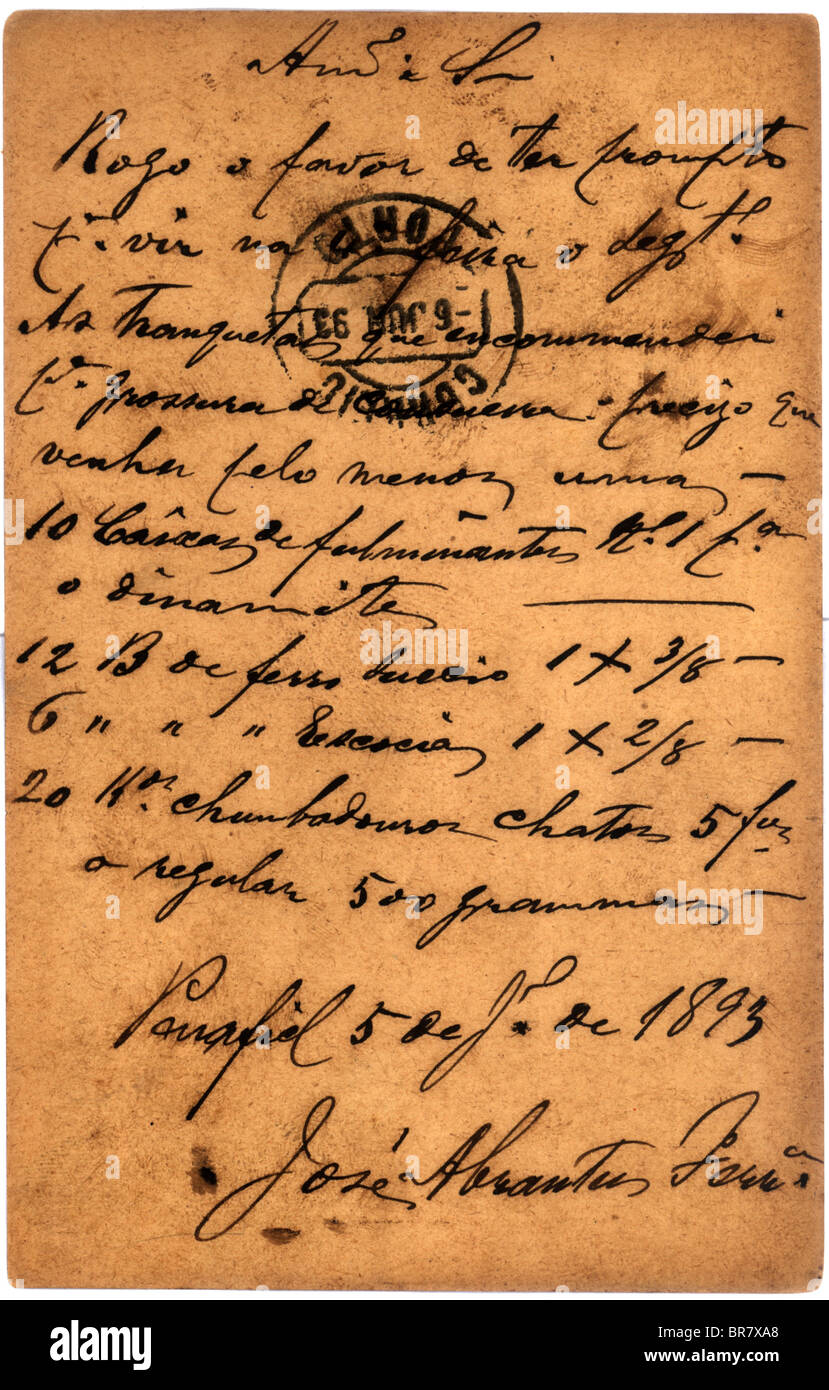 Amº e Sr
Rogo o favor de ter prompto
pª vir na feira o segte
As Tranquetas que encommendei
pª grossura de preciso que
venha pelo menos uma —
10 Caixas de fulminantes Nº 1 pª
o dinamite
12 B de ferro Suecio 1 X 3/8 —
6 " " " Escocia 1 X 2/8 —
20 Kos chumbadouros chatos 5 fos
o regular 500 grammas —
Penafiel 5 de Jº de 1893
José Abrantes Ferrª
PORTO
-6 JUN 93
alamy
Image ID: BR7XA8
www.alamy.com